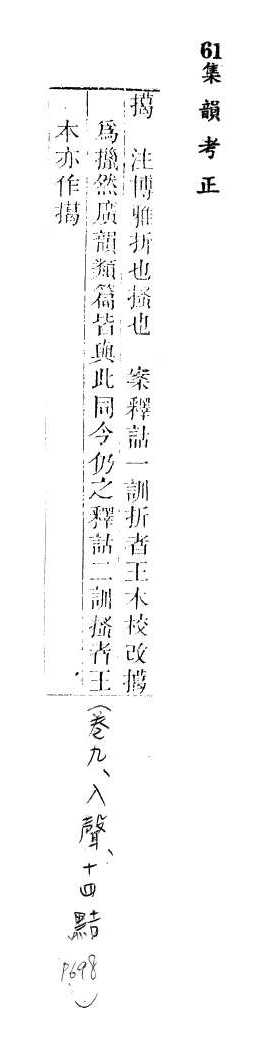 61集韻考正
擖 注博雅折也搔也 案釋詁一訓折者王本校改擸
為擸然廣韻類篇皆與此同今仍之釋詁二訓搔者王
本亦作擖
(卷九、入聲、十四黠 p698)